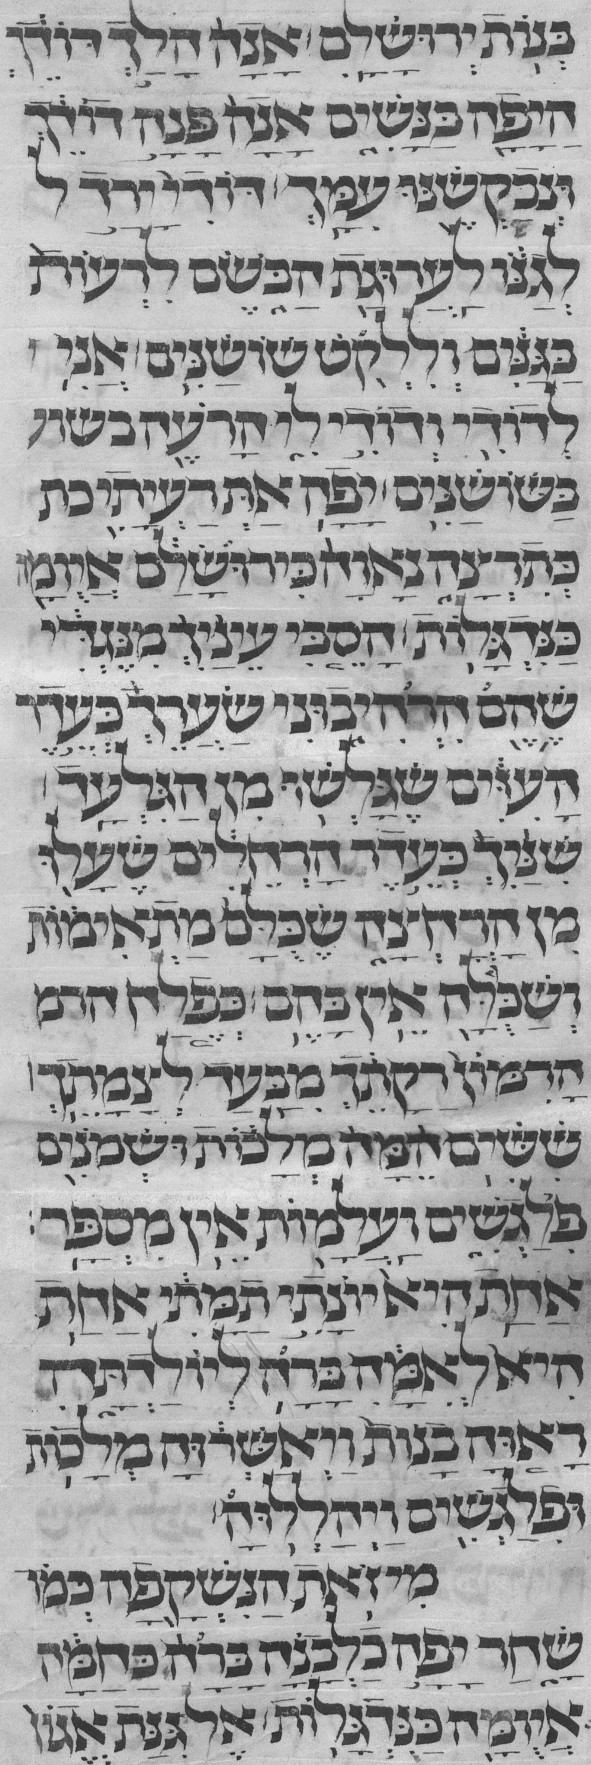 בנות ירושלם אנה הלך דודך
היפה בנשים אנה פנה דודך
ונבקשנו עמך דודי ירד ל
לגנו לערוגת הבשם לרעות
בגנים וללקט שושנים אני
לדודי ודודי לי הרעה בשוע
בשושנים יפה את רעיתי כת
כתרצה נאוה כירושלם איומה
כנדגלות הסבי עיניך מנגדי
שהם הרהיבוני שערך כעדר
העזים שגלשו מן הגלעד
שניך כעדר הרחלים שעלו
מן הרחצה שכלם מתאימות
ושכלה אין בהם כפלח הרמ
הרמון רקתך מבעד לצמתך
ששים המה מלכות ושמנים
פלגשים ועלמות אין מספר
אחת היא יונתי תמתי אחת
היא לאמה ברה ליולדתה
ראוה בנות ויאשרוה מלכות
ופלגשים ויהללוה
מי זאת הנשקפה כמו
שחר יפה כלבנה ברה כחמה
איומה כנדגלות אל גנת אגוז